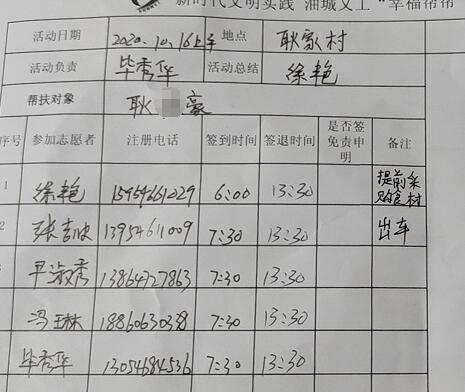 新时代文明实践 油城义工 "幸福帮帮
活动日期 2020.10.16上午 地点 耿家村
活动负责 毕秀华 活动总结 徐艳
帮扶对象 耿 豪
序号 参加志愿者 注册电话 签到时间 签退时间 是否签免责申明 备注
1 徐艳 15954661029 6:00 13:30 提前采购食材
2 张吉 13954611009 7:30 13:30 出车
3 平淑秀 13864727863 7:30 13:30
冯玉林 18860630338 7:30 13:30
毕秀华 13054684536 7:30 13:30